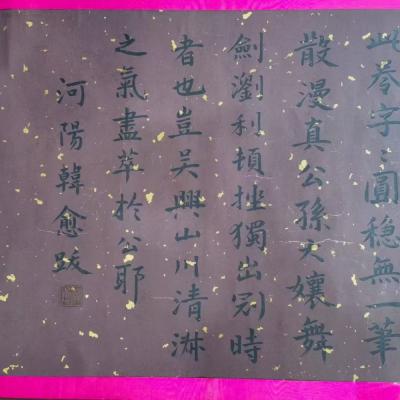 此卷字〻圓穩無一筆
散漫真公孫大孃舞
劍瀏利頓挫獨出冠時
者也豈吴興山川清淑
之氣盡萃於公耶
河陽韓愈跋